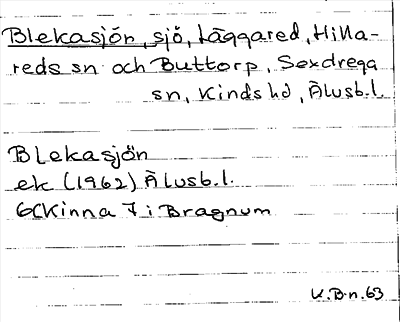 Blekasjön, sjö, Läggared, Hilla-
reds sn och Buttorp, Sexdrega
sn, Kinds hd, Älvsb. l.
Blekasjön
ek (1962) Älvsb. l.
6C Kinna 7 i Bragnum
K. B-n. 63